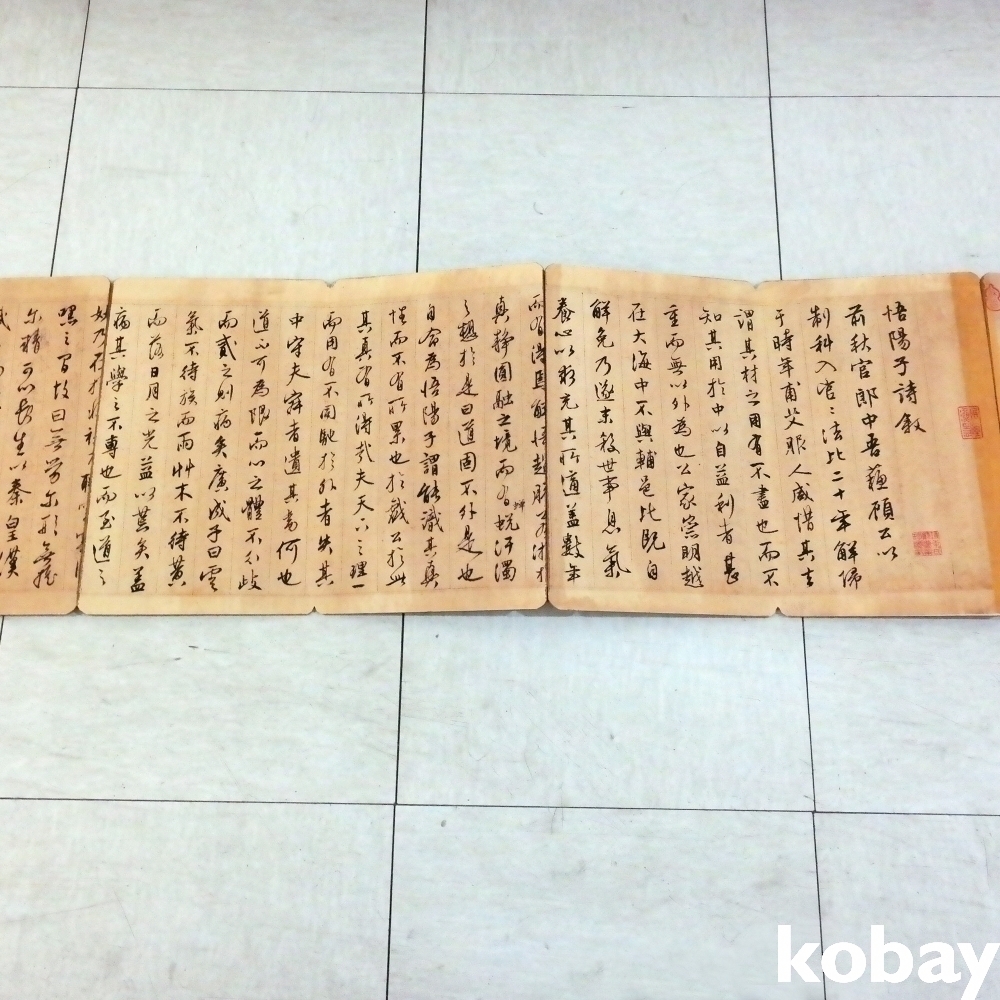 悟陽子詩敘
前秋官郎中吾蘇顧公以
制科入官〻法比二十年解佩
于時年甫艾服人咸惜其去
謂其材之用有不盡也而不
知其用於中以自益利者甚
重而無以外為也公家崇明越
在大海中不與輔邑比既自
解免乃遂末殺世事息氣
養心以務充其所道蓋數年
而有得焉
真靜圓融之境而有蛻汙濁
之趣於是曰道固不外是也
自命為悟陽子謂能識其真
悟而不有所累也於戲公於此
其真有所得哉夫天下之理一
而用有不同馳於外者失其
中守夫寂者遺其書何也
道不可為限而心之體不以歧
而貳之則病矣廣成子曰雲
氣不待族而雨艸木不待黃
而落日月之光益以荒矣蓋
病其學之不專也而至道之
妙乃在於
嘿之間故曰無勞爾形無搖
爾精可以長生以秦皇漢
kobay